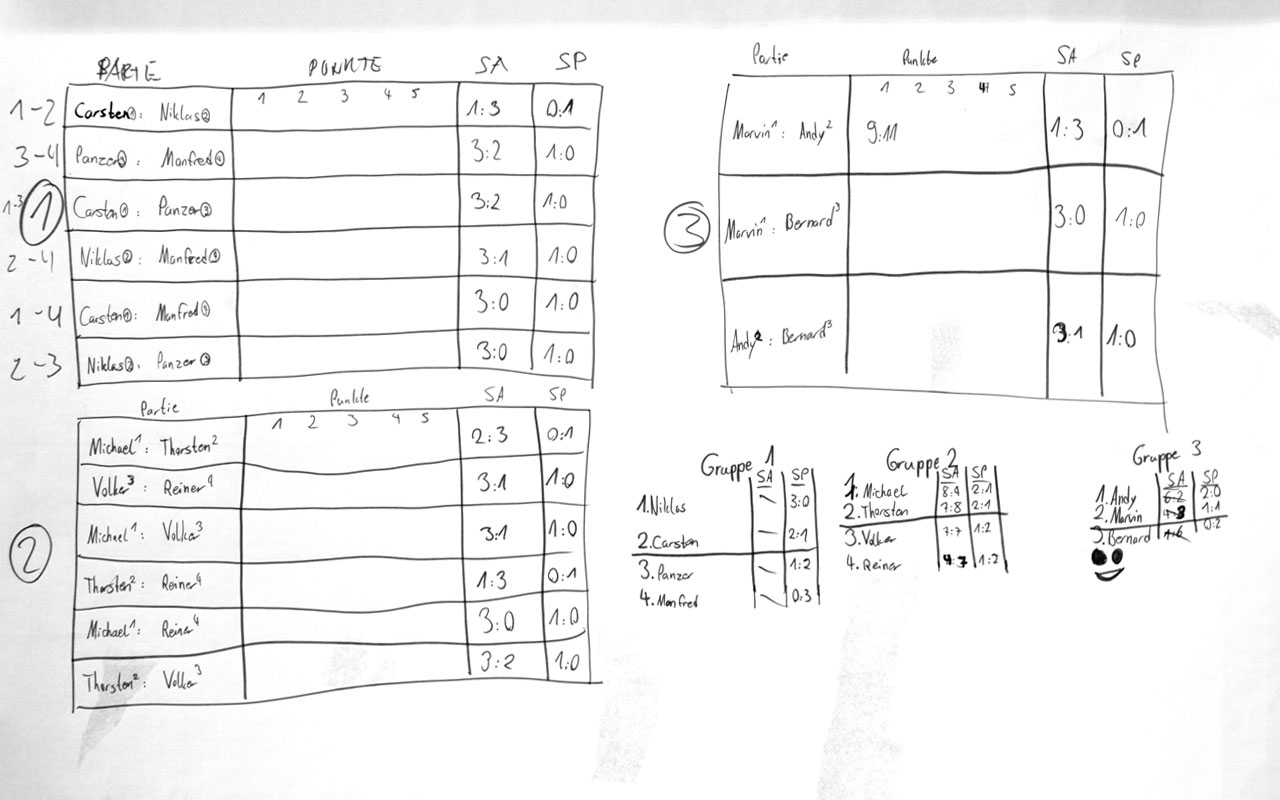 PARTIE PUNKTE SA SP
1 2 3 4 5
1-2 Carsten①: Niklas② 1:3 0:1
3-4 Panzer③: Manfred④ 3:2 1:0
1-3 Carsten①: Panzer③ 3:2 1:0
①
2-4 Niklas②: Manfred④ 3:1 1:0
1-4 Carsten①: Manfred④ 3:0 1:0
2-3 Niklas②: Panzer③ 3:0 1:0
Partie Punkte SA SP
1 2 3 4 5
Michael¹: Thorsten² 2:3 0:1
Volker³: Reiner⁴ 3:1 1:0
Michael¹: Volker³ 3:1 1:0
②
Thorsten²: Reiner⁴ 1:3 0:1
Michael¹: Reiner⁴ 3:0 1:0
Thorsten²: Volker³ 3:2 1:0
Partie Punkte SA SP
1 2 3 4 5
Marvin¹: Andy² 9:11 1:3 0:1
③
Marvin¹: Bernard³ 3:0 1:0
Andy²: Bernard³ 3:1 1:0
Gruppe 1
SA SP
1. Niklas – 3:0
2. Carsten – 2:1
3. Panzer – 1:2
4. Manfred – 0:3
Gruppe 2
SA SP
1. Michael 8:4 2:1
2. Thorsten 7:8 2:1
3. Volker 7:7 1:2
4. Reiner 4:7 1:2
Gruppe 3
SA SP
1. Andy 6:2 2:0
2. Marvin 4:3 1:1
3. Bernard 1:6 0:2